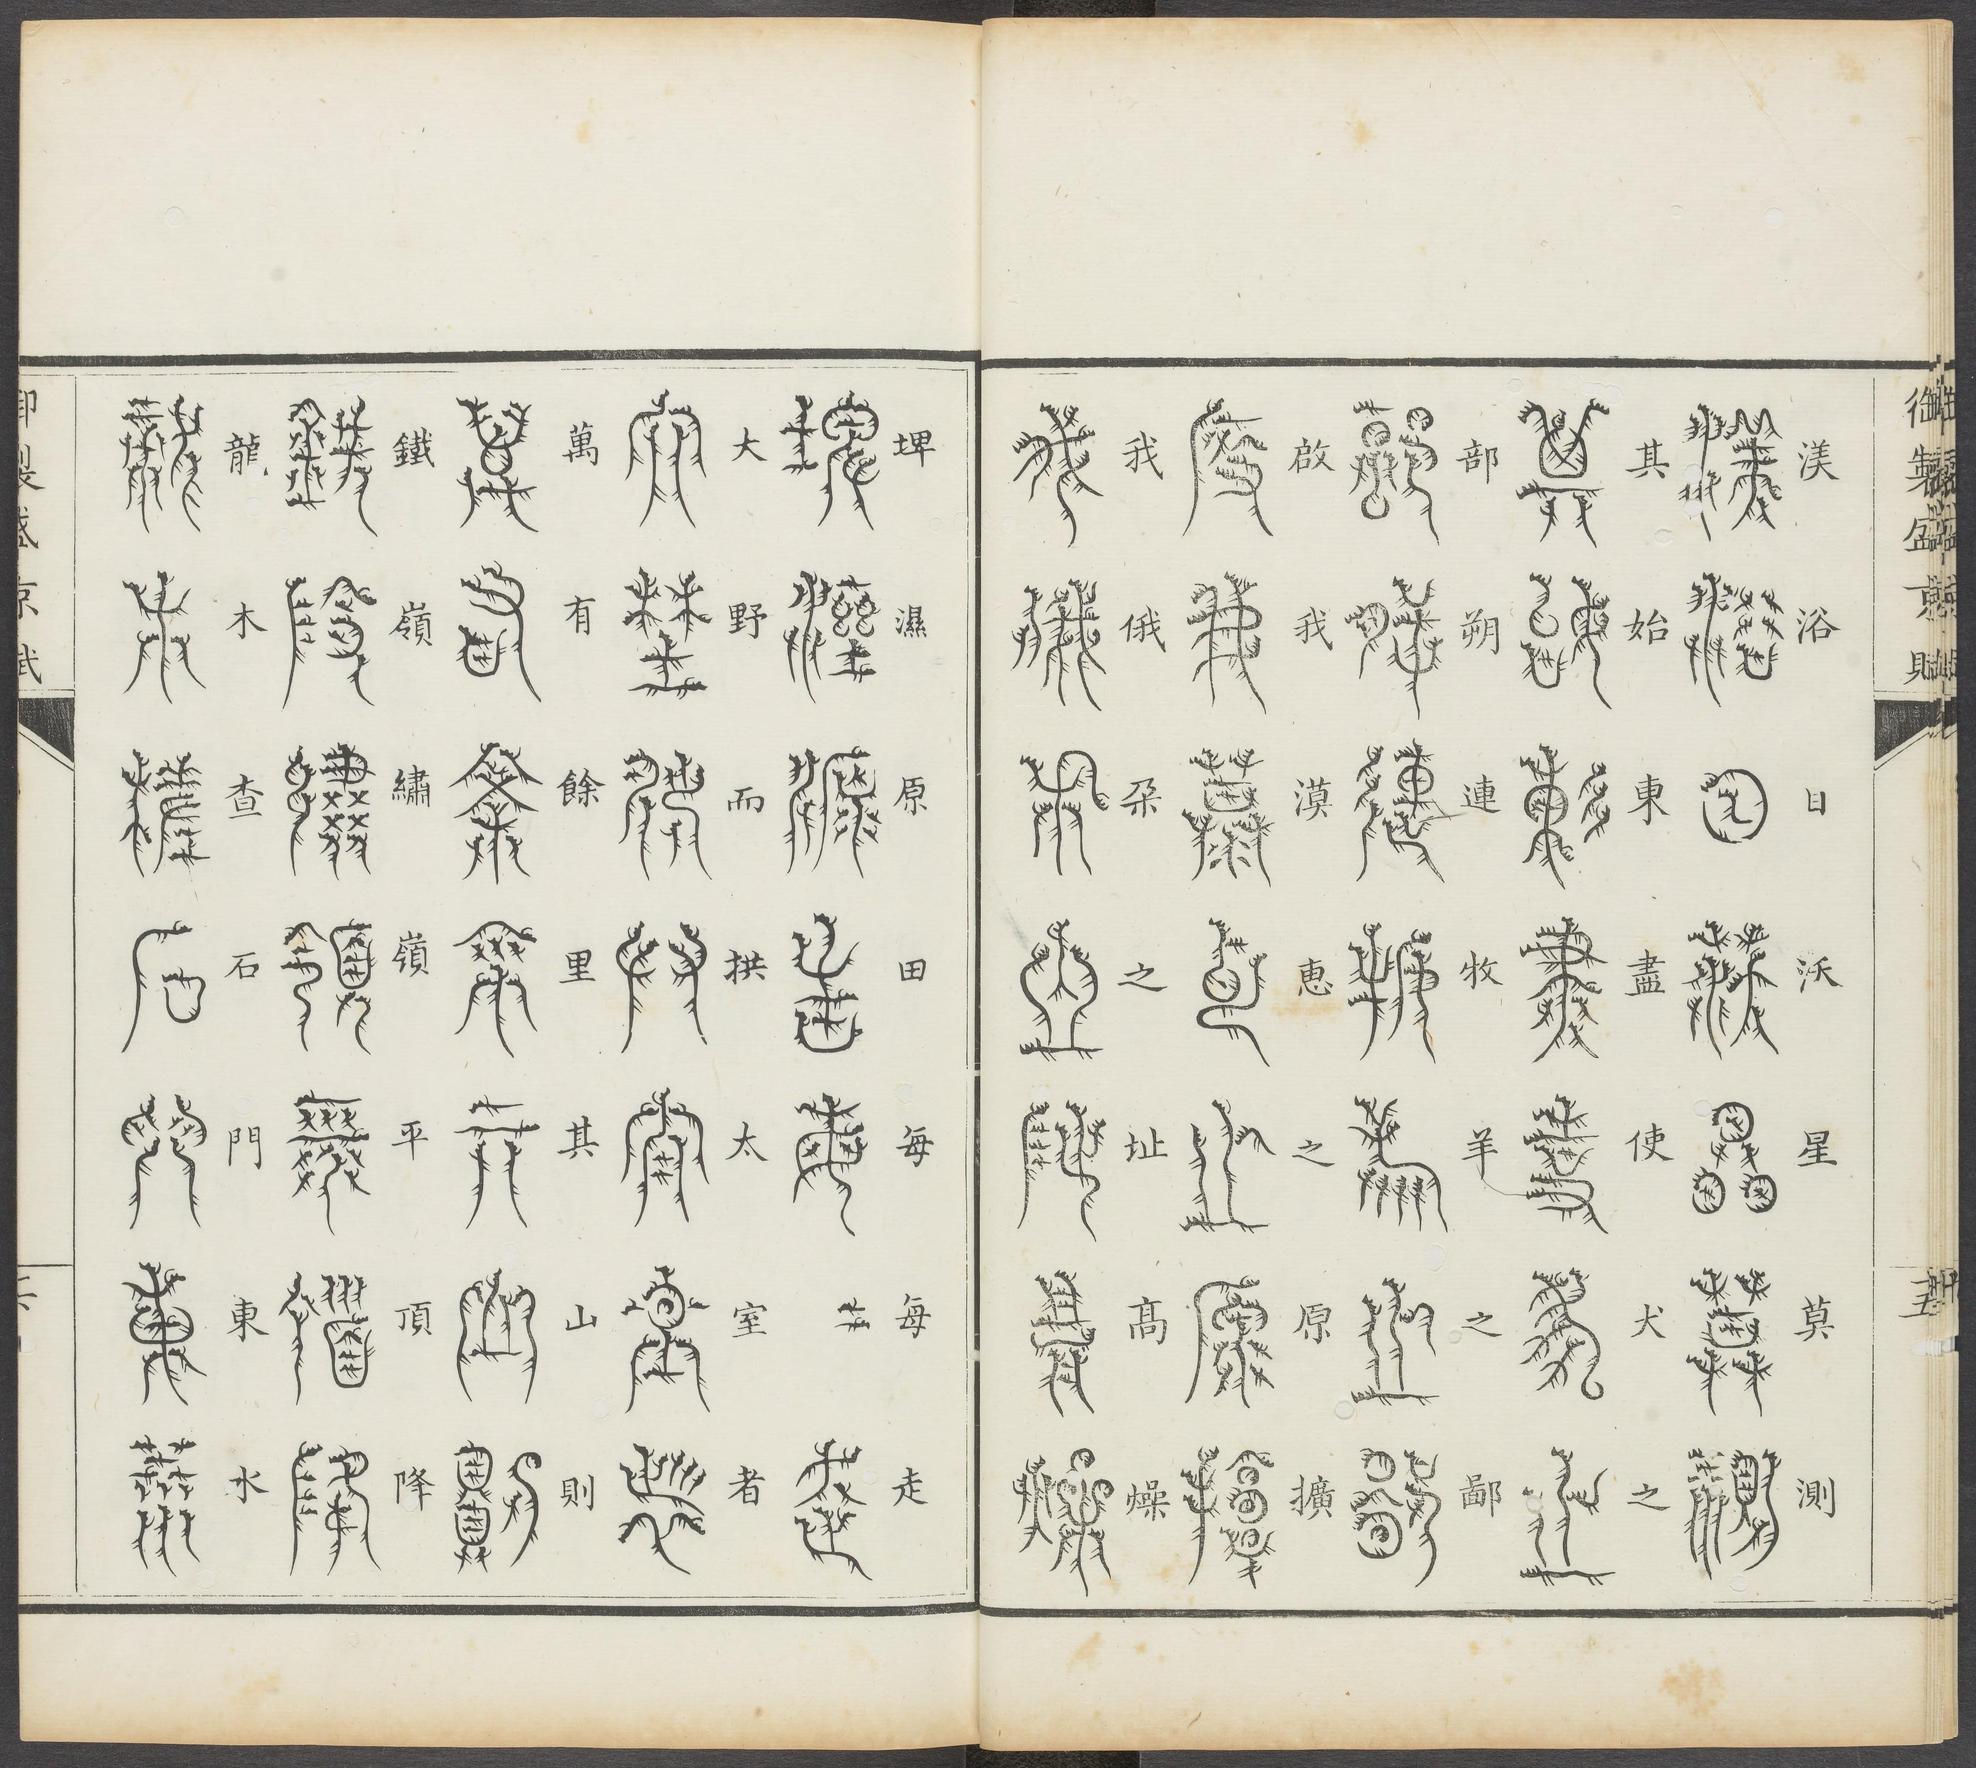 御製盛京賦
渼浴日沃星莫測
其始東盡使犬之
部朔連牧羊之鄙
啟我漠惠之原擴
我俄朶之址高燥
埤濕原田每每走
大野而拱太室者
萬有餘里其山則
鐵嶺繡嶺平頂降
龍木查石門東水
御製盛京賦